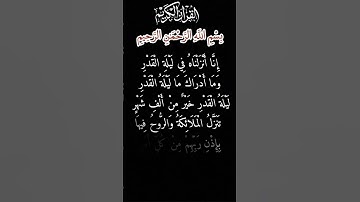 القرآن الكريم
بِسْمِ اللَّهِ الرَّحْمَٰنِ الرَّحِيمِ
إِنَّا أَنْزَلْنَاهُ فِي لَيْلَةِ الْقَدْرِ
وَمَا أَدْرَاكَ مَا لَيْلَةُ الْقَدْرِ
لَيْلَةُ الْقَدْرِ خَيْرٌ مِنْ أَلْفِ شَهْرٍ
تَنَزَّلُ الْمَلَائِكَةُ وَالرُّوحُ فِيهَا
بِإِذْنِ رَبِّهِمْ مِنْ كُلِّ